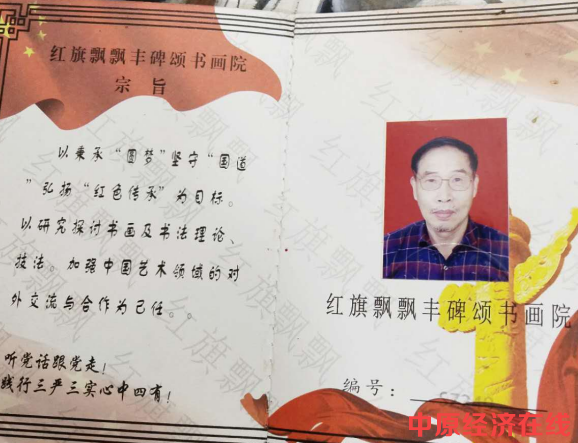 红旗飘飘丰碑颂书画院
宗旨
以秉承“圆梦”坚守“国道
”弘扬“红色传承”为目标。
以研究探讨书画及书法理论、
技法。加强中国艺术领域的对
外交流与合作为己任。。
听党话跟党走！
践行三严三实心中四有！
红旗飘飘丰碑颂书画院
编号：
中原经济在线